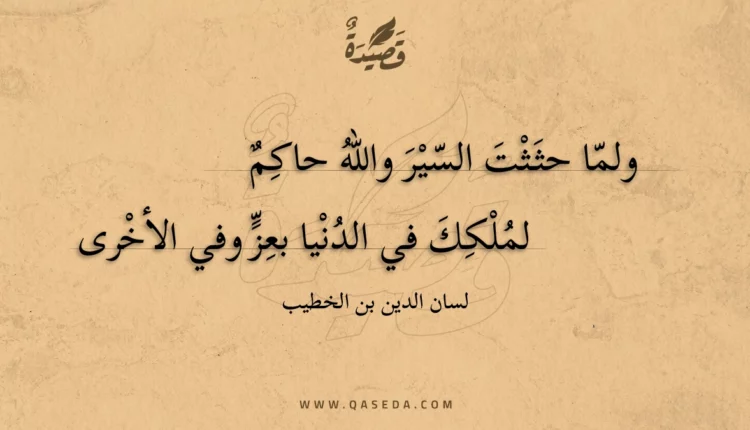 قَصِيْدَةٌ
ولمّا حثَثْتَ السّيْرَ واللهُ حاكِمٌ
لمُلْكِكَ في الدُنْيا بعِزٍّ وفي الأخْرى
لسان الدين بن الخطيب
WWW.QASEDA.COM